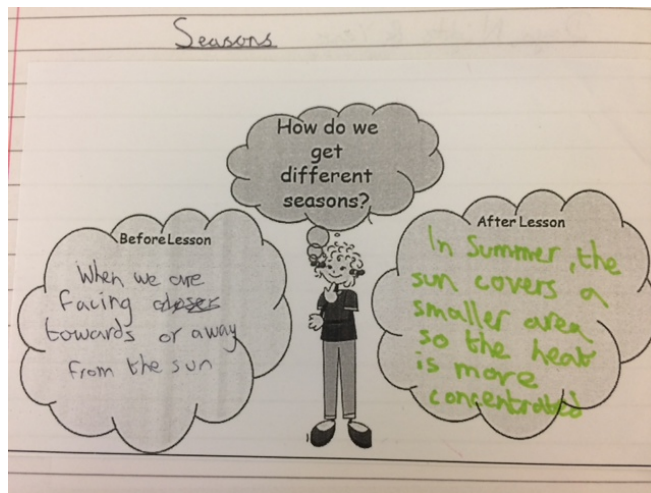 Seasons
How do we
get
different
seasons?
Before Lesson
When we are
facing closer
towards or away
from the sun
After Lesson
In Summer, the
sun covers a
smaller area
so the heat
is more
concentrated